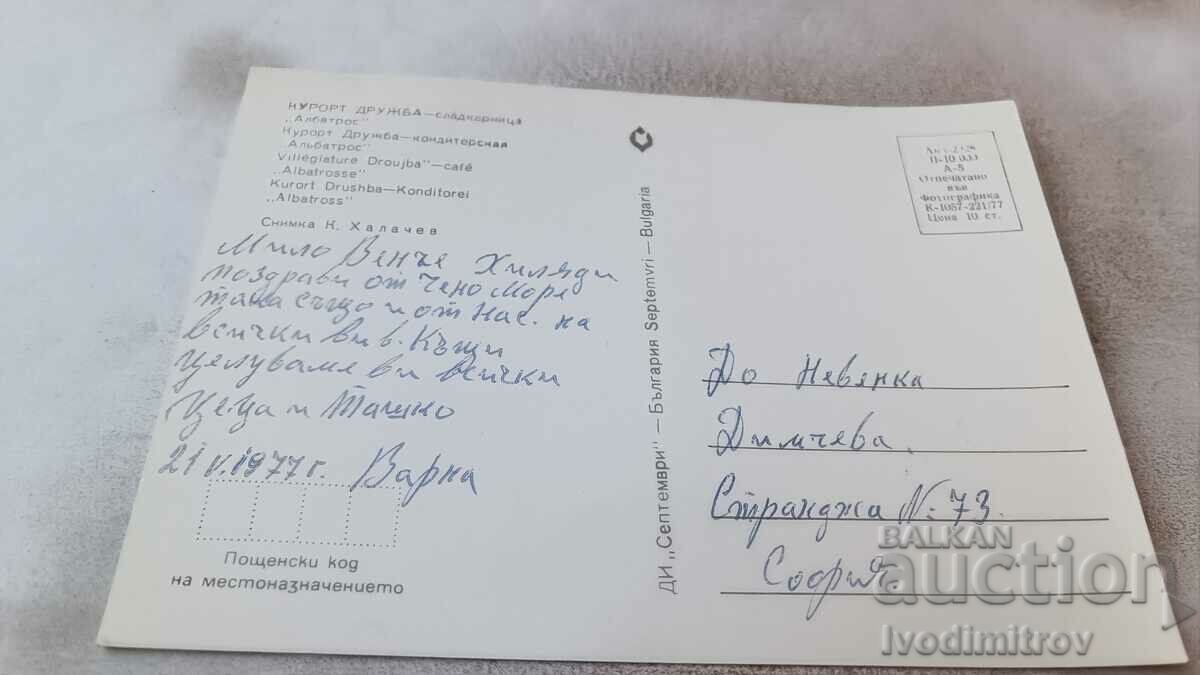 КУРОРТ ДРУЖБА—сладкарница
„Албатрос"
Курорт Дружба—кондитерская
„Альбатрос"
Villégiature Droujba"—café
„Albatrosse"
Kurort Drushba—Konditorei
„Albatross"
Снимка К. Халачев
Мило Венче Хиляди
поздрави от Чено Море
така също и от Нас. на
всички ви в. Къщи
целуваме ви всички
Цеца и Ташко
21 V. 1977 г. Варна
Пощенски код
на местоназначението
ДИ „Септември" — България Septemvri — Bulgaria
II-10 033
А-5
Отпечатано
във
Фотографика
К-1057-221/77
Цена 10 ст.
До Невянка
Димчева
Странджа № 73
София.
BALKAN
auction
Ivodimitrov